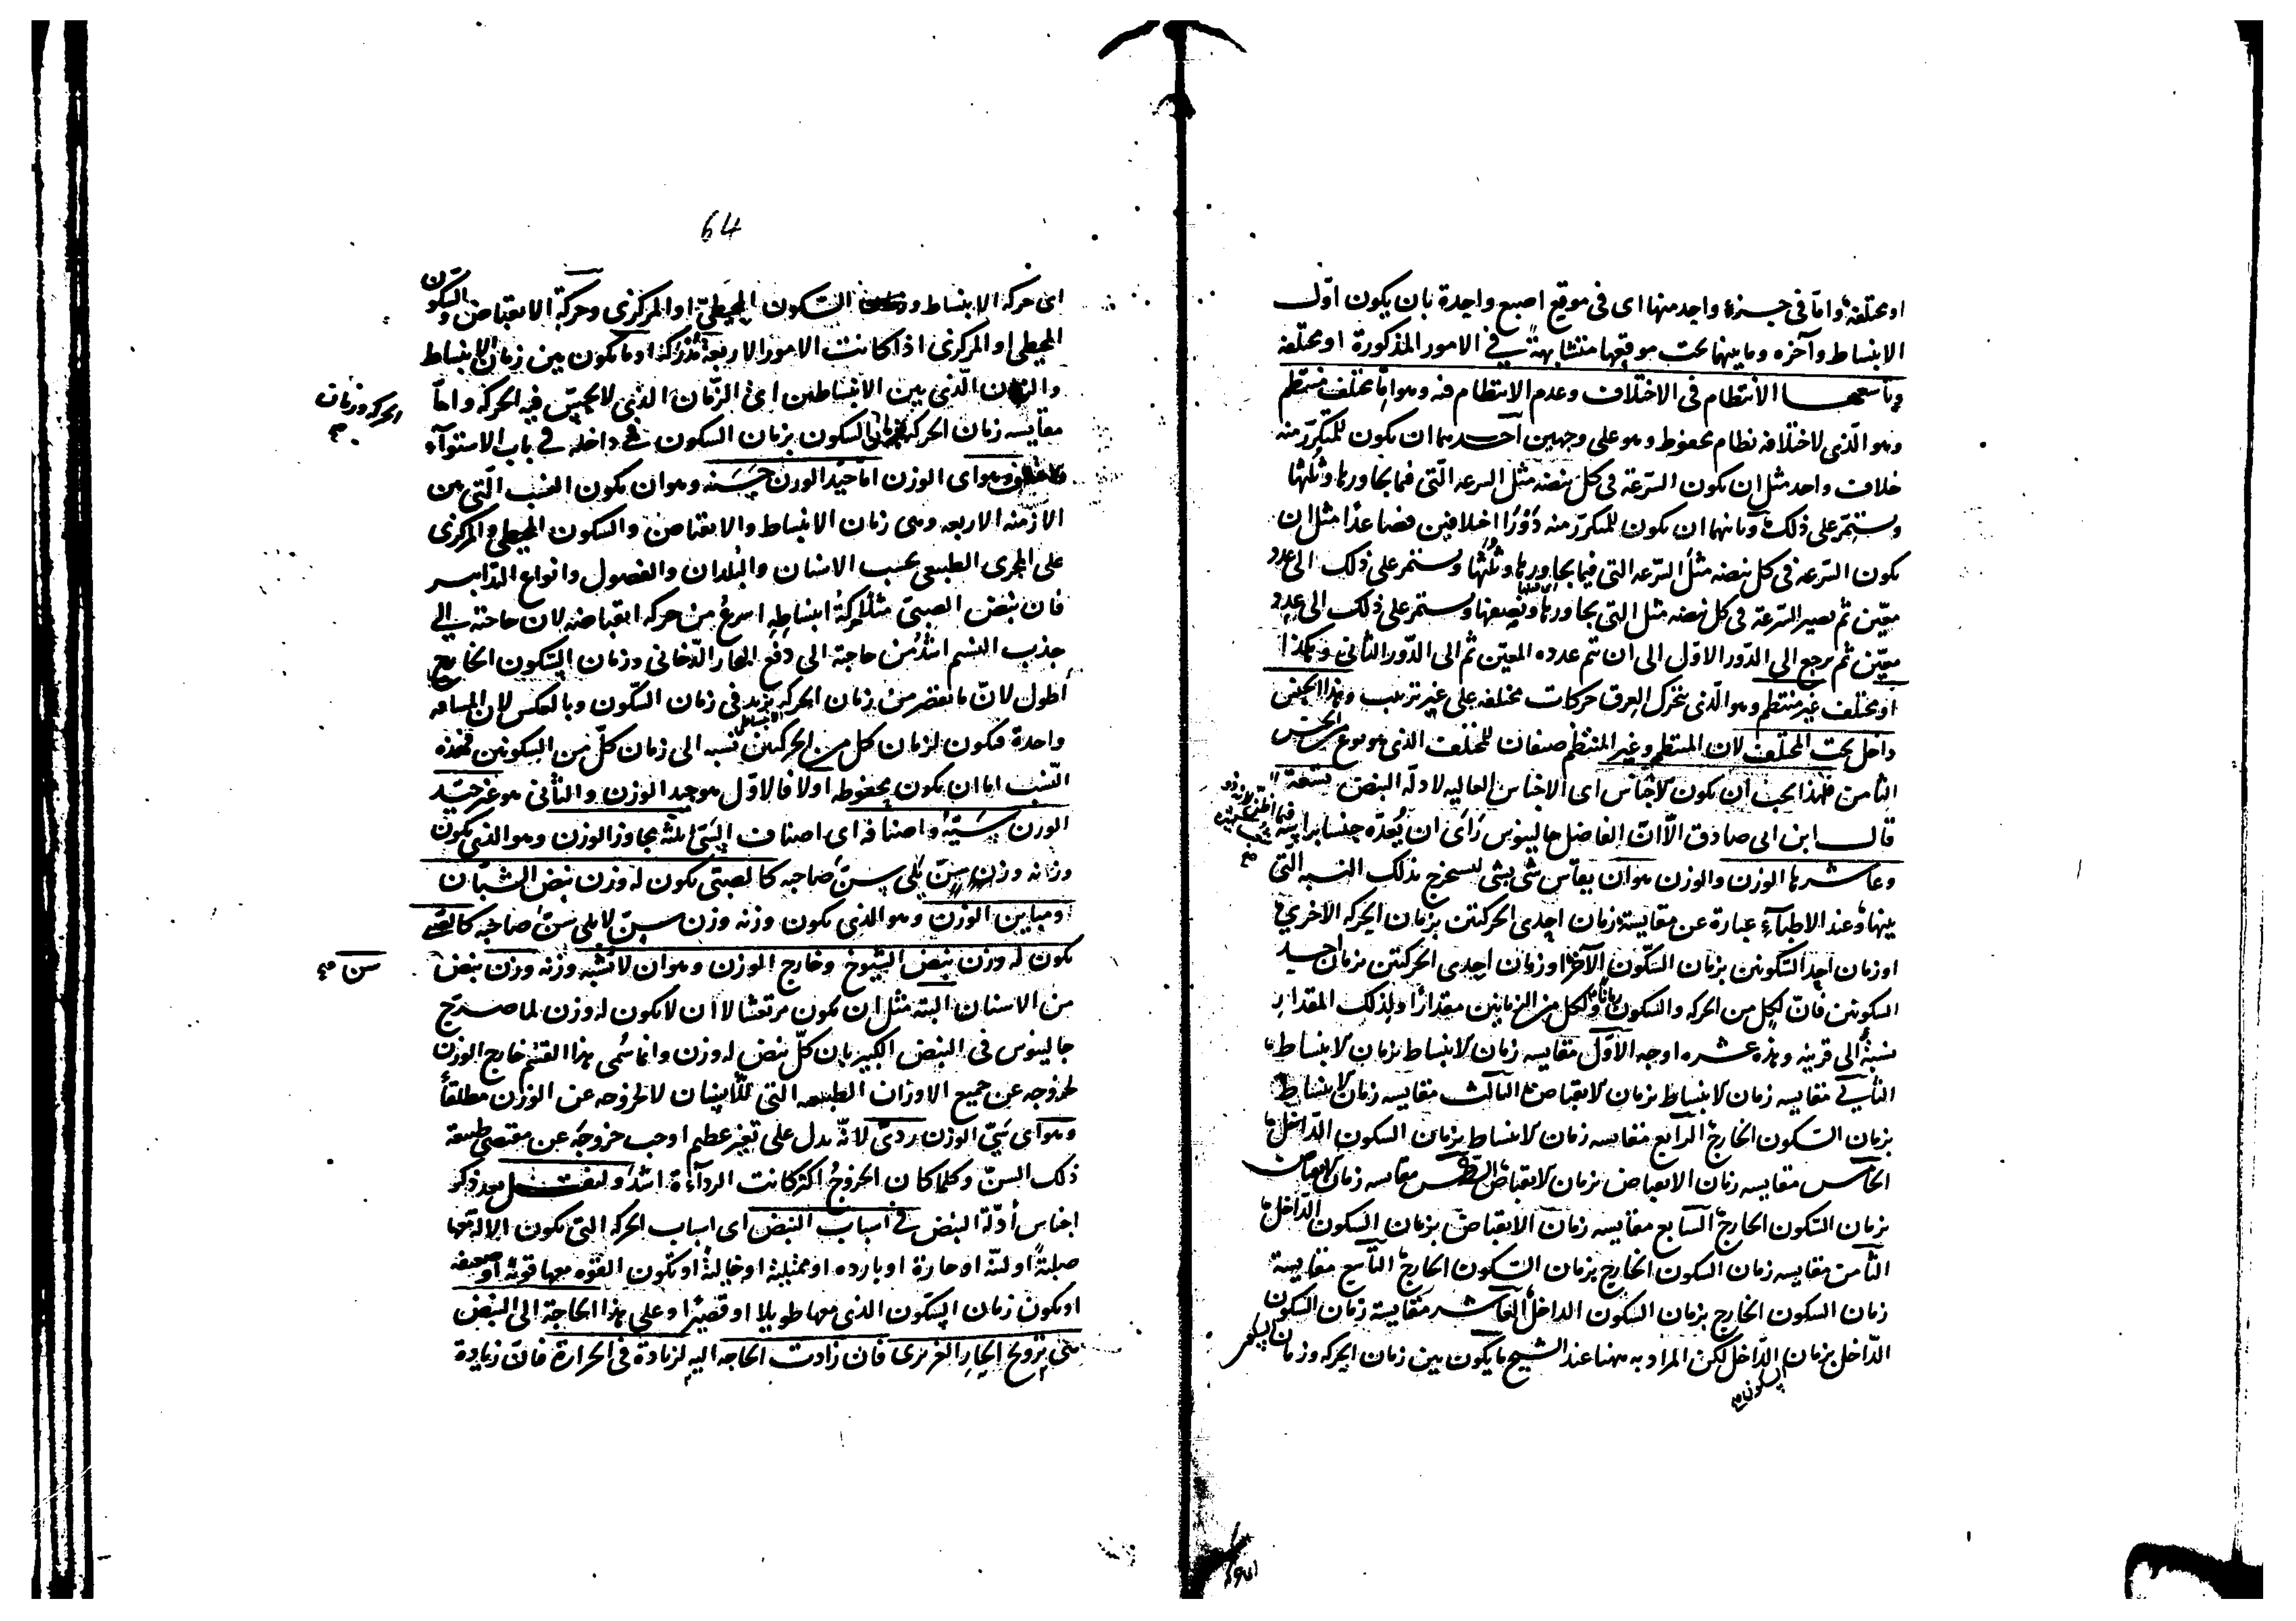 او مختلفة واما فى جزء واحد منها اى فى موقع اصبع واحدة بان يكون اوّل
الانبساط وآخره وما بينهما تحت موقعها متشابهة فى الامور المذكورة او مختلفه
وتاسعها الانتظام فى الاختلاف وعدم الانتظام فيه وهو اما مختلف منتظم
وهو الّذى لاختلافه نظام محفوظ وهو على وجهين احدهما ان يكون للمتكرّر منه
خلاف واحد مثل ان يكون السّرعة فى كل نبضه مثل السرعه الّتى فيما يجاورها وثُلثها
ويستمرّ على ذلك وثانيهما ان يكون للمتكرّر منه دَوْرَا اختلافين فصاعدًا مثل ان
يكون السّرعه فى كل نبضه مثل السّرعه التى فيما يجاورها وثُلثها ويستمر على ذلك الى عدد
معيّن ثم يصير السّرعة فى كل نبضه مثل التى يجاورها ونصفها ويستمر على ذلك الى عدد
معيّن ثم يرجع الى الدّور الاوّل الى ان يتم عدده المعيّن ثم الى الدّور الثانى وهكذا
او مختلف غير منتظم وهو الّذى يتحرّك العرق حركات مختلفه على غير ترتيب وهذا الجنس
داخل تحت المختلف لان المنتظم وغير المنتظم صنفان للمختلف الذى هو نوع من الجنس
الثامن فلهذا يجب ان يكون الاجناس اى الاجناس العاليه لادلّة النبض تسعة
قال ابن ابى صادق الّا انّ الفاضل جالينوس رَاَى ان يُعدّه جنسا براسه
وعاشرها الوزن والوزن هو ان يقاس شى بشى ليستخرج بذلك النسبه التى
بينهما وعند الاطبّاء عبارة عن مقايسة زمان احدى الحركتين بزمان الحركه الاخرى
او زمان احد السّكونين بزمان السّكون الآخر او زمان احدى الحركتين بزمان احد
السكونين فانّ لكل من الحركه والسّكون زمانا ولكل من الزمانين مقدارًا ولذلك المقدار
نسبةٌ الى قرينه وهذه عشره اوجه الاوّل مقايسه زمان الانبساط بزمان الانبساط
الثانى مقايسه زمان الانبساط بزمان الانقباض الثالث مقايسه زمان الانبساط
بزمان السّكون الخارج الرابع مقايسه زمان الانبساط بزمان السكون الدّاخل
الخامس مقايسه زمان الانقباض بزمان الانقباض السّادس مقايسه زمان الانقباض
بزمان السّكون الخارج السّابع مقايسه زمان الانقباض بزمان السكون الدّاخل
الثّامن مقايسه زمان السكون الخارج بزمان السّكون الخارج التّاسع مقايسة
زمان السكون الخارج بزمان السكون الداخل العاشر مقايسة زمان السكون
الدّاخل بزمان الدّاخل لكن المراد به ههنا عند الشيخ ما يكون بين زمان الحركه وزمان السكون
السكون
64
اى حركه الانبساط و السّكون المحيطىّ او المركزى وحركة الانقباض والسكون
المحيطى او المركزى اذا كانت الامور الاربعة مُدْرَكة او ما يكون بين زمان الانبساط
والزمان الّذى بين الانبساطين اى الزّمان الذى لا يحسّ فيه الحركه وامّا
الحركه وزمان
مقايسه زمان الحركة السكون بزمان السكون فهى داخله فى باب الاستوآء
وهو اى الوزن امّا جيّد الوزن حسنه وهو ان يكون النسب الّتى من
الازمنه الاربعه وهى زمان الانبساط والانقباض والسكون المحيطى والمركزى
على المجرى الطبيعى بحسب الاسنان والبلدان والفصول وانواع التدابير
فان نبض الصبىّ مثلا حركةُ انبساطِهِ اسرعُ من حركه انقباضه لان حاجته الى
جذب النسيم اشدّ من حاجة الى دفع البخار الدّخانى وزمان السّكون الخارج
اطول لانّ ما نقص من زمان الحركه يزيد فى زمان السّكون وبالعكس لان المسافه
واحدة فيكون لزمان كل من الحركتين نسبه الى زمان كلّ من السكونين فهذه
النّسب اما ان يكون محفوظه اولا فالاوّل هو جيد الوزن والثّانى هو غير جيّد
الوزن سَيّئه واصنافه اى اصناف السّىّ ثلثه مجاوز الوزن وهو الذى يكون
وزنه وزن سِنّ يَلى سِنّ صاحبه كالصبىّ يكون له وزن نبض الشبّان
او مباين الوزن وهو الذى يكون وزنه وزن سِنّ لا يلى سِنّ صاحبه كالصبى
يكون له وزن نبض الشيوخ وخارج الوزن وهو ان لا يشبه وزنه وزن نبض
سن
من الاسنان البته مثل ان يكون مرتعشا لا ان لا يكون له وزن لما صرّح
جالينوس فى النبض الكبير بان كلّ نبض له وزن وانما سُمى هذا القسم خارج الوزن
لخروجه عن جميع الاوزان الطبيعه التى للأسنان لا لخروجه عن الوزن مطلقاً
وهو اى سَىّ الوزن ردىّ لانّه يدل على تغير عظيم اوجب خروجَه عن مقتضى طبيعة
ذلك السنّ وكلما كان الخروجُ اكثر كانت الردآءة اشدّ ولنقل بعد ذكر
اجناس أدلّة النبض فى اسباب النبض اى اسباب الحركه التى يكون الالة معها
صلبةً او لينّه او حارة او بارده او ممتلية او خاليةً او يكون القوّه معها قويّة او ضعيفه
او يكون زمان السّكون الذى معها طويلا او قصيرًا وعلى هذا الحاجة الى النبض
هى تروّح الحارِ الغريزى فان زادت الحاجه اليهِ لزيادة فى الحرارة فانّ زيادة